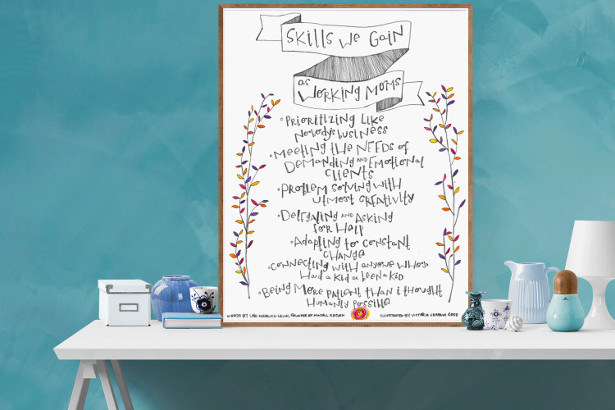 Skills We Gain
as
Working Moms
•Prioritizing Like
Nobody's business
•Meeting the NEEDS of
Demanding AND Emotional
Clients
•Problem solving with
utmost creativity
•Delegating AND Asking
for Help
•Adapting to constant
change
•Connecting with anyone who's
Had a kid or been a kid
•Being More patient than i thought
Humanly possible
WORDS BY LORI MIHALICH-LEVIN, FOUNDER OF MINDFUL RETURN
ILLUSTRATED BY